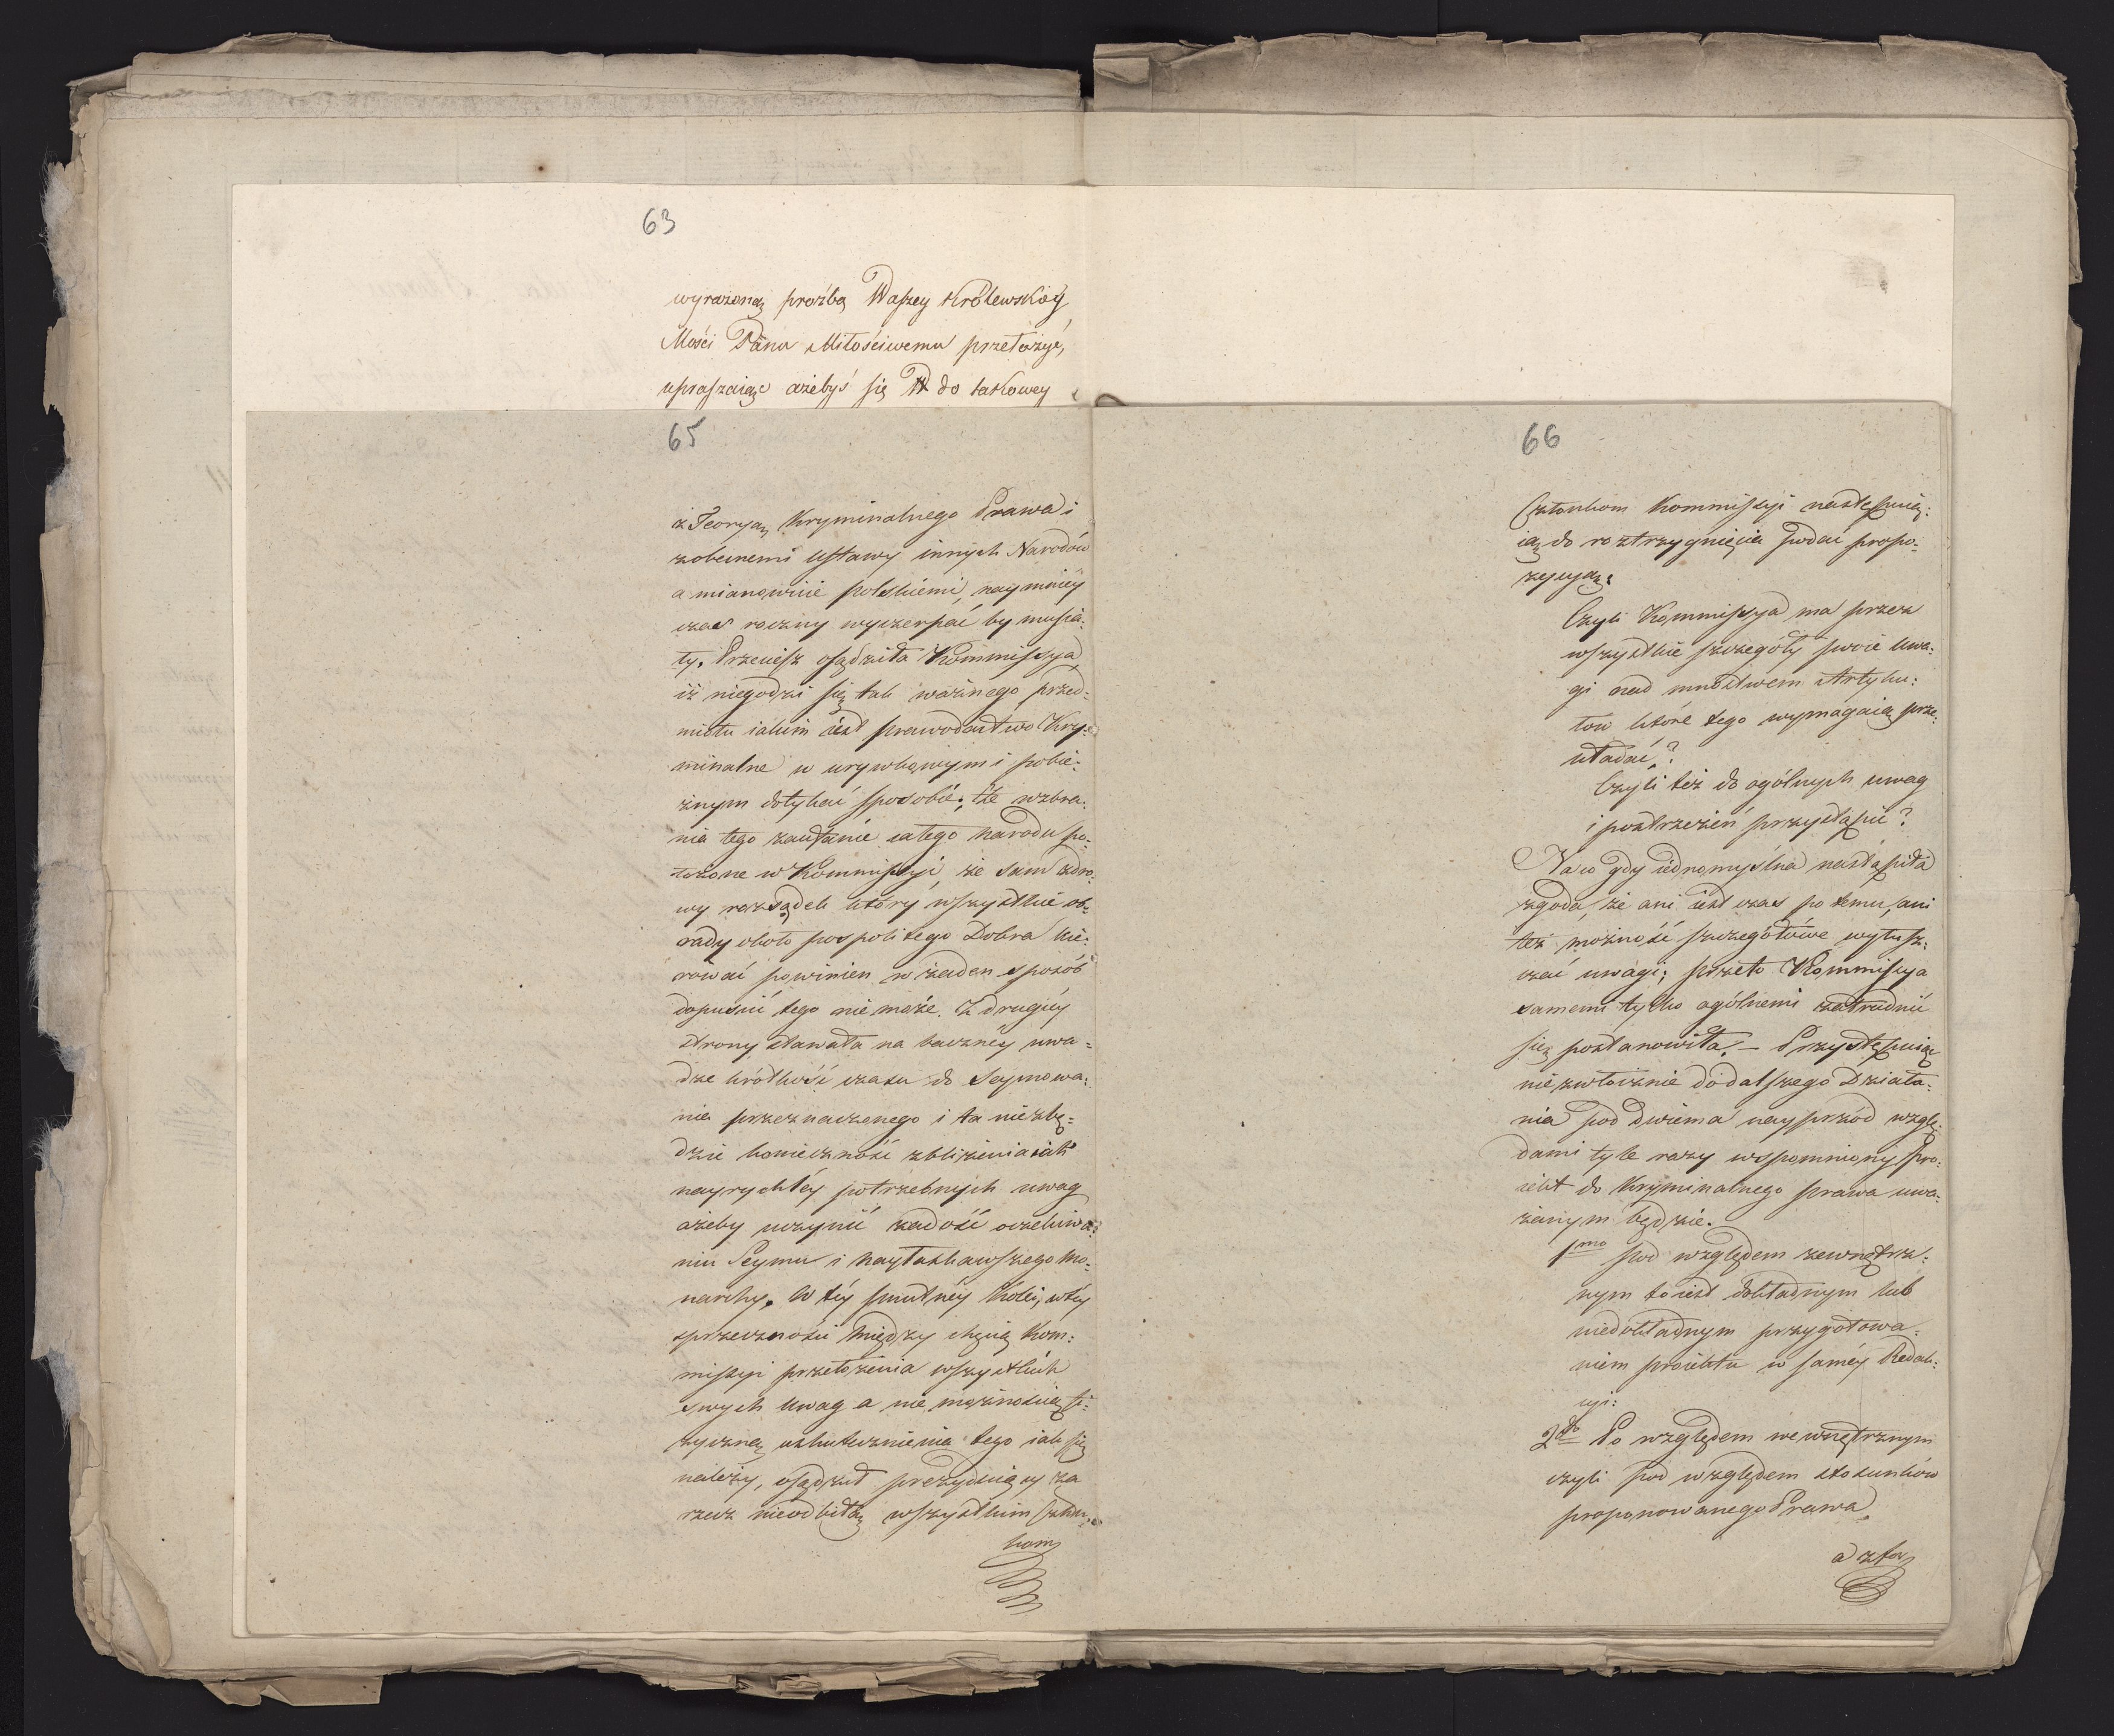 63
wyrażoną proźbą Waszey Królewskiéy
Mości Panu Miłościwemu przełożyć,
upraszaiąc ażebyś się W do takowey
65
z Teoryą Kryminalnego Prawa i
z obecnemi Ustawy innych Narodów
a mianowicie polskiemi, naymniéy
czas roczny wyczerpać by musia:
ły. Przecież osądziła Kommissya
iż niegodzi się tak ważnego przed:
miotu iakim iest prawodastwo Kry:
minalne w urywkowym i pobie:
żnym dotykać sposobie; Ile wzbra:
nia tego zaufanie całego Narodu po:
łożone w Kommissyi, że sam zdro:
wy rozsądek który wszystkie ob:
rady około pospolitego Dobra kie:
rować powinien w żaden sposób
dopuścić tego nie może. Z drugiéy
strony stawała na baczney uwa:
dze krótkość czasu do Seymowa:
nia przeznaczonego i ta niezbę:
dzie konieczność zbliżenia iak
nayrychléy potrzebnych uwag
ażeby uczynić zadość oczekiwa:
niu Seymu i Nayłaskawszego Mo:
narchy. W téy smutnéy kolei, w téy
sprzeczności między chęcią Kom:
missyi przełożenia wszystkich
swych Uwag a nie możnością fi:
zyczną uskutecznienia tego iak się
należy, osądził prezyduiący za
rzecz nieodbitą wszystkim Człon:
kom
66
Członkom Kommissyi następuią:
cą do roztrzygnięcia podać propo:
zycyą:
Czyli Kommissya ma przez
wszystkie szczegóły swoie Uwa:
gi nad mnóstwem Artyku:
łów które tego wymagaią prze:
kładać?
Czyli też do ogólnych uwag
i postrzeżeń przystąpić?
Na co gdy iednomyślna nastąpiła
zgoda, że ani iest czas po temu, ani
też możność szczegółowe wytusz:
czać uwagi; przeto Kommissya
samemi tylko ogólnemi zatrudnić
się postanowiła. – Przystępuiąc
niezwłocznie do dalszego Działa:
nia pod dwiema nayprzód wzglę:
dami tyle razy wspomniony Pro:
iekt do Kryminalnego prawa uwa:
żanym będzie.
1mo pod względem zewnętrz:
nym to iest dokładnym lub
niedokładnym przygotowa:
niem proiektu w saméy Redak:
cyi:
2do Po względem wewnętrznym
czyli pod względem stosunków
proponowanego Prawa
a zta